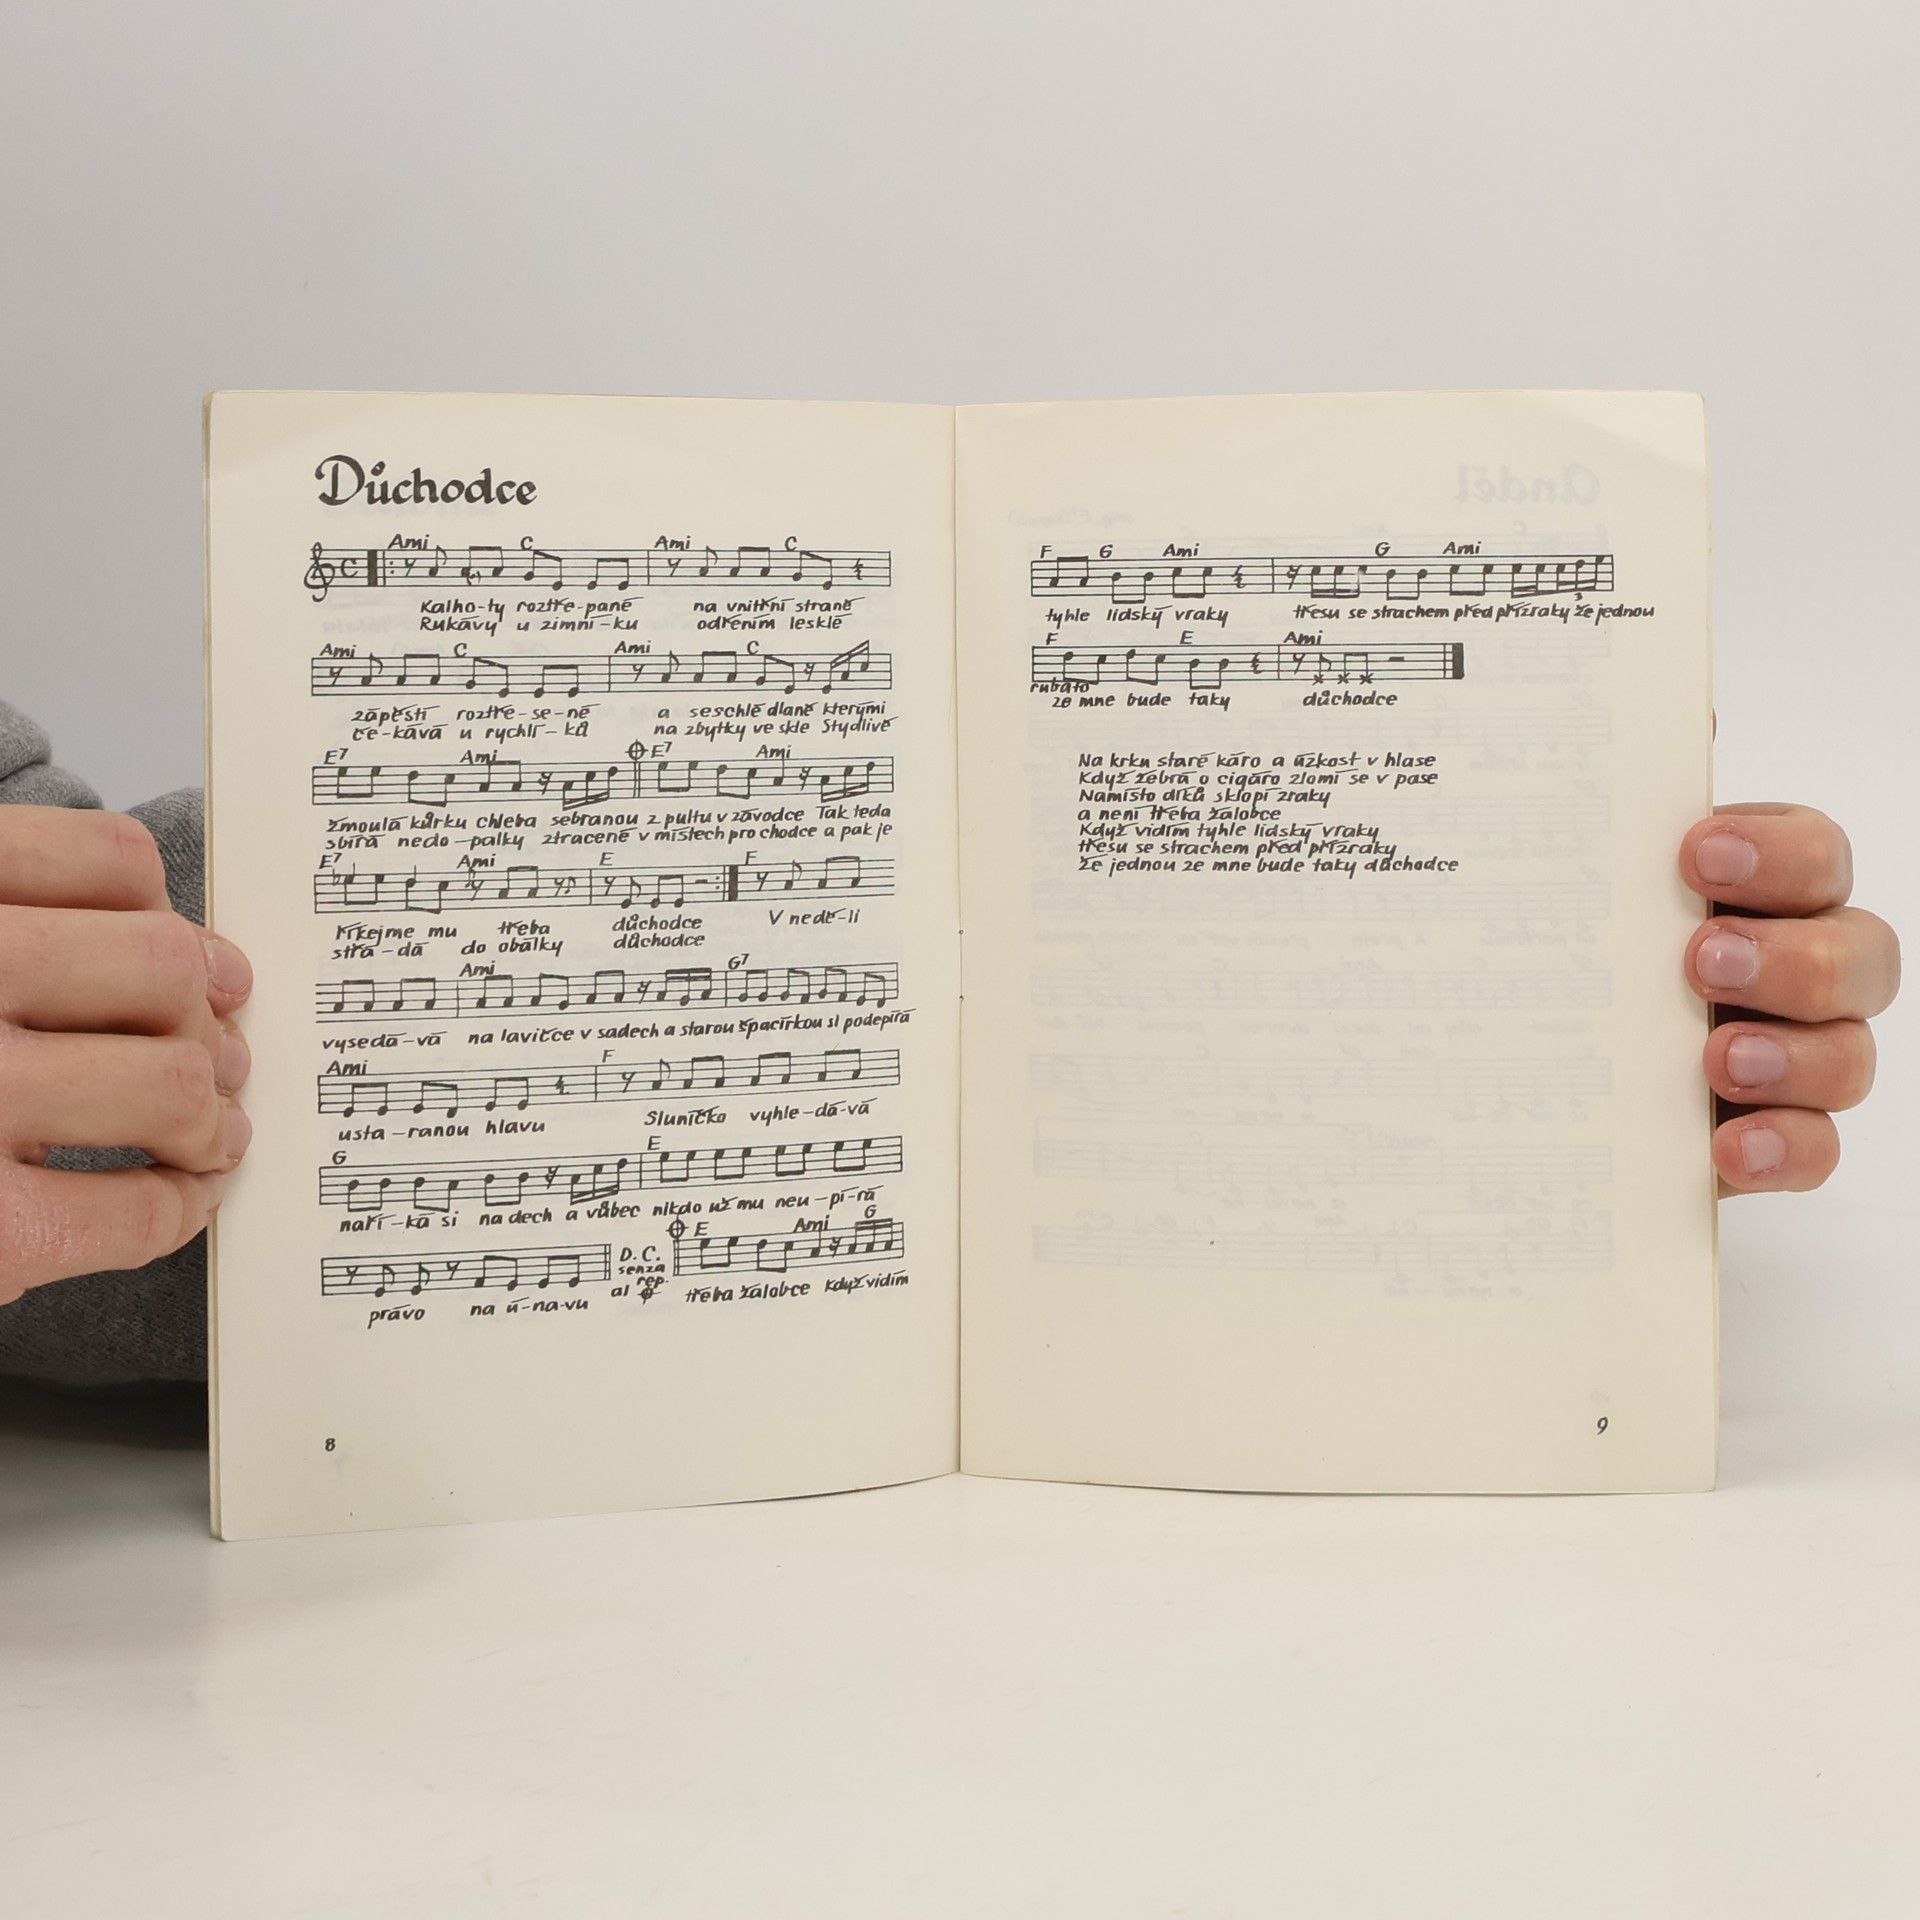 Důchodce
Ami C Ami C
Kalho-ty roztře-pané na vnitřní straně
Rukávy u zimní-ku odřením lesklé
Ami C Ami C
zápěstí roztře-se-né a seschlé dlaně kterými
če-kává u rychlí-ků na zbytky ve skle Stydlivě
E7 Ami E7 Ami
žmoulá kůrku chleba sebranou z pultu v závodce Tak teda
sbírá nedo-palky ztracené v místech pro chodce a pak je
E7 Ami E F
říkejme mu třeba důchodce V nedě-li
střá-dá do obálky důchodce
Ami G7
vysedá-vá na lavičce v sadech a starou špacírkou si podepírá
Ami F
usta-ranou hlavu Sluníčko vyhle-dá-vá
G E
naří-ká si na dech a vůbec nikdo už mu neu-pí-rá
D.C. senza rep. al E Ami G
právo na ú-na-vu třeba žalobce Když vidím
8
F G Ami G Ami
3
tyhle lidský vraky třesu se strachem před přízraky že jednou
F E Ami
rubato
ze mne bude taky důchodce
Na krku staré káro a úzkost v hlase
Když žebrá o cigáro zlomí se v pase
Namísto díků sklopí zraky
a není třeba žalobce
Když vidím tyhle lidský vraky
třesu se strachem před přízraky
Že jednou ze mne bude taky důchodce
9